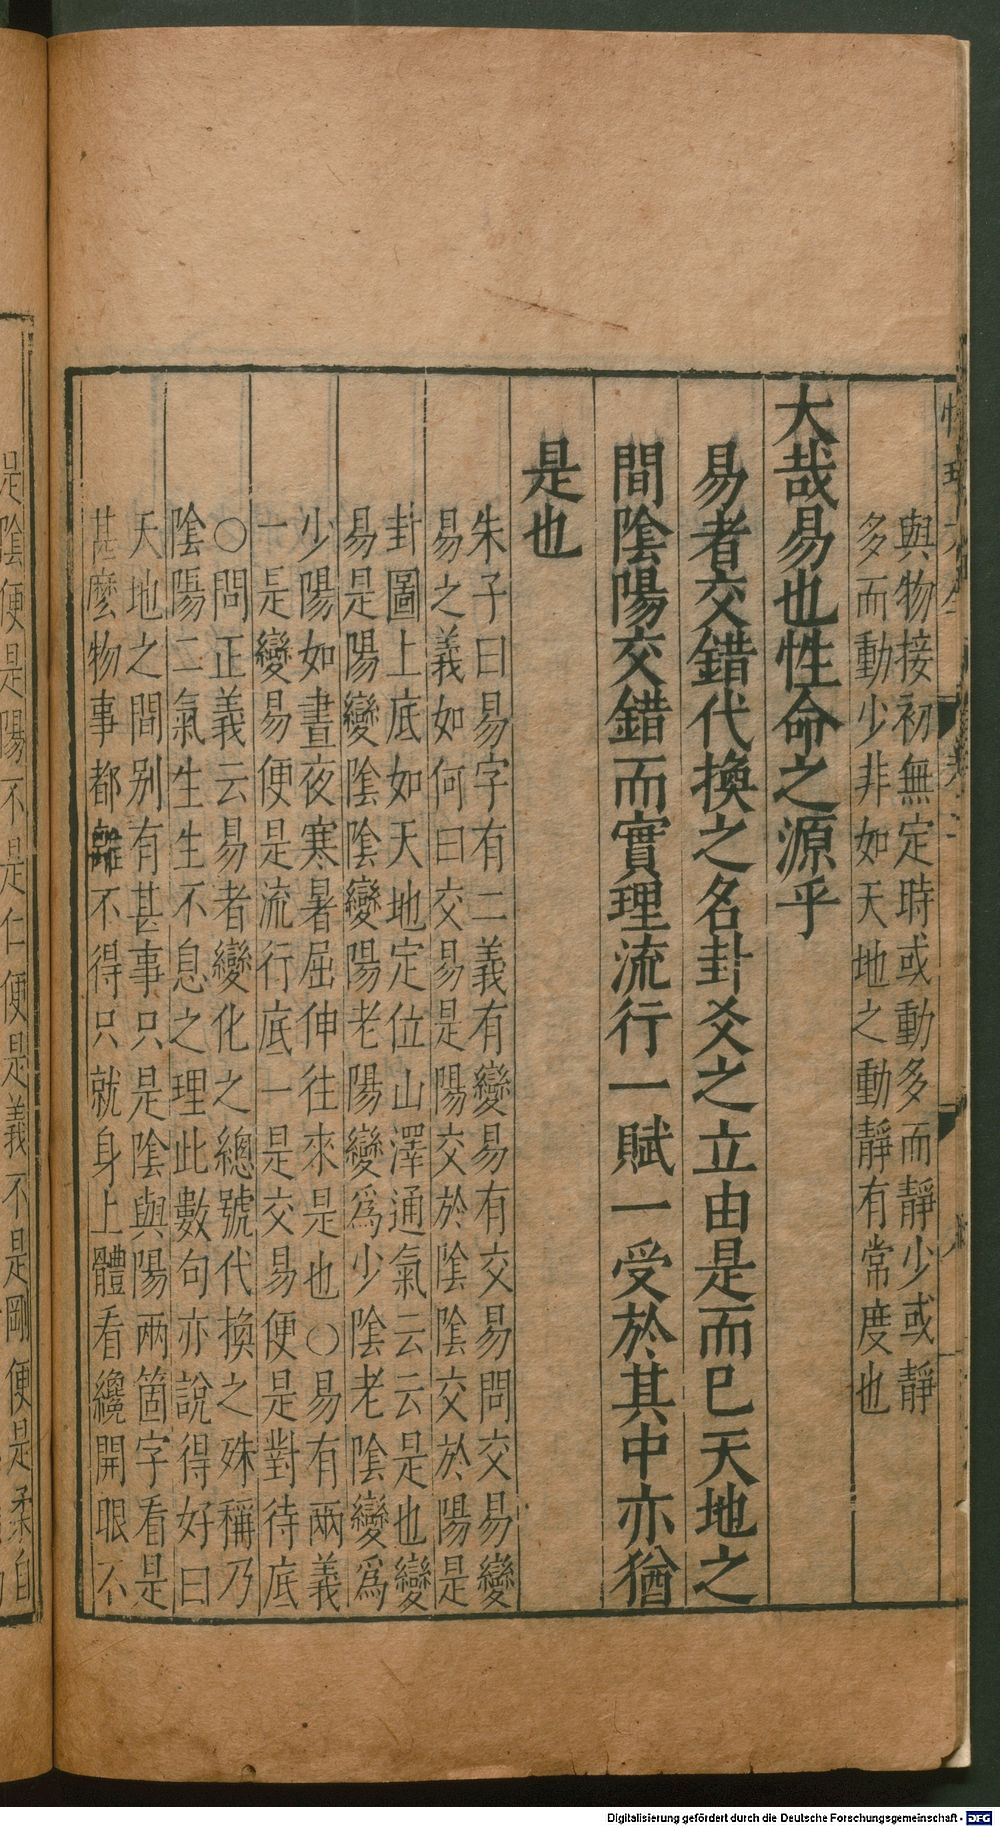 與物接初無定時或動多而靜少或靜
多而動少非如天地之動靜有常度也
大哉易也性命之源乎
易者交錯代換之名卦爻之立由是而已天地之
間陰陽交錯而實理流行一賦一受於其中亦猶
是也
朱子曰易字有二義有變易有交易問交易變
易之義如何曰交易是陽交於陰陰交於陽是
卦圖上底如天地定位山澤通氣云云是也變
易是陽變陰陰變陽老陽變爲少陰老陰變爲
少陽如晝夜寒暑屈伸往來是也○易有兩義
一是變易便是流行底一是交易便是對待底
○問正義云易者變化之總號代換之殊稱乃
陰陽二氣生生不息之理此數句亦說得好曰
天地之間别有甚事只是陰與陽兩箇字看是
甚麼物事都離不得只就身上體看纔開眼不
是陰便是陽不是仁便是義不是剛便是柔自
Digitalisierung gefördert durch die Deutsche Forschungsgemeinschaft - DFG